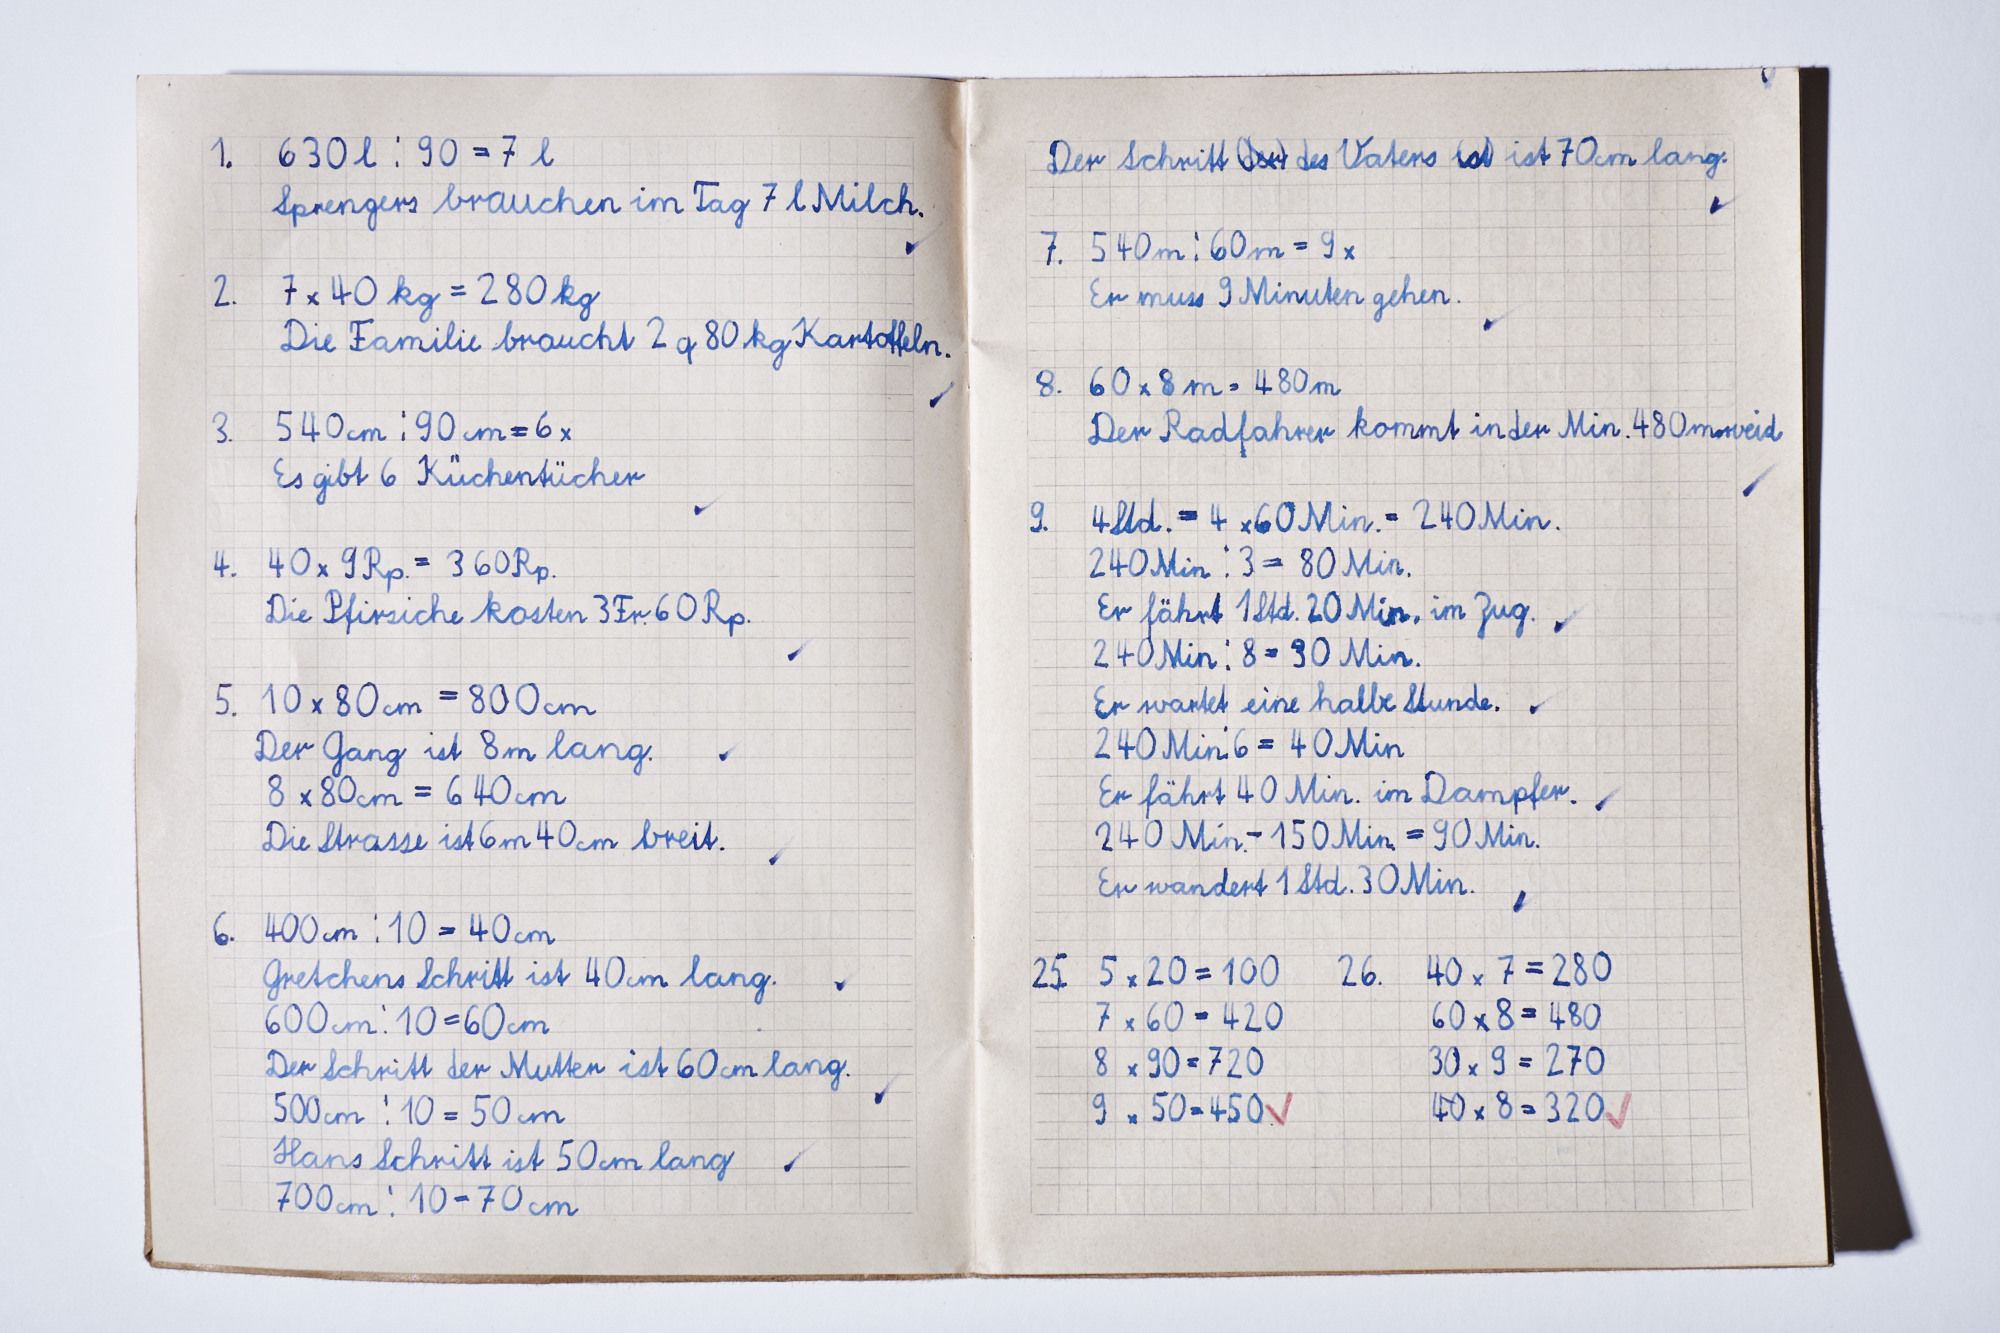 1. 630 l : 90 = 7 l
Sprengers brauchen im Tag 7 l Milch.
2. 7 x 40 kg = 280 kg
Die Familie braucht 2 q 80 kg Kartoffeln.
3. 540 cm : 90 cm = 6 x
Es gibt 6 Küchentücher
4. 40 x 9 Rp. = 360 Rp.
Die Pfirsiche kosten 3 Fr. 60 Rp.
5. 10 x 80 cm = 800 cm
Der Gang ist 8 m lang.
8 x 80 cm = 640 cm
Die Strasse ist 6 m 40 cm breit.
6. 400 cm : 10 = 40 cm
Gretchens Schritt ist 40 cm lang.
600 cm : 10 = 60 cm
Der Schritt der Mutter ist 60 cm lang.
500 cm : 10 = 50 cm
Hans Schritt ist 50 cm lang
700 cm : 10 = 70 cm
Der Schritt (der) des Vaters (ist) ist 70 cm lang.
7. 540 m : 60 m = 9 x
Er muss 9 Minuten gehen.
8. 60 x 8 m = 480 m
Der Radfahrer kommt in der Min. 480 m weid
9. 4 Std. = 4 x 60 Min. = 240 Min.
240 Min : 3 = 80 Min.
Er fährt 1 Std. 20 Min. im Zug.
240 Min : 8 = 30 Min.
Er wartet eine halbe Stunde.
240 Min : 6 = 40 Min
Er fährt 40 Min. im Dampfer.
240 Min. - 150 Min. = 90 Min.
Er wandert 1 Std. 30 Min.
25. 5 x 20 = 100 26. 40 x 7 = 280
7 x 60 = 420 60 x 8 = 480
8 x 90 = 720 30 x 9 = 270
9 x 50 = 450 40 x 8 = 320